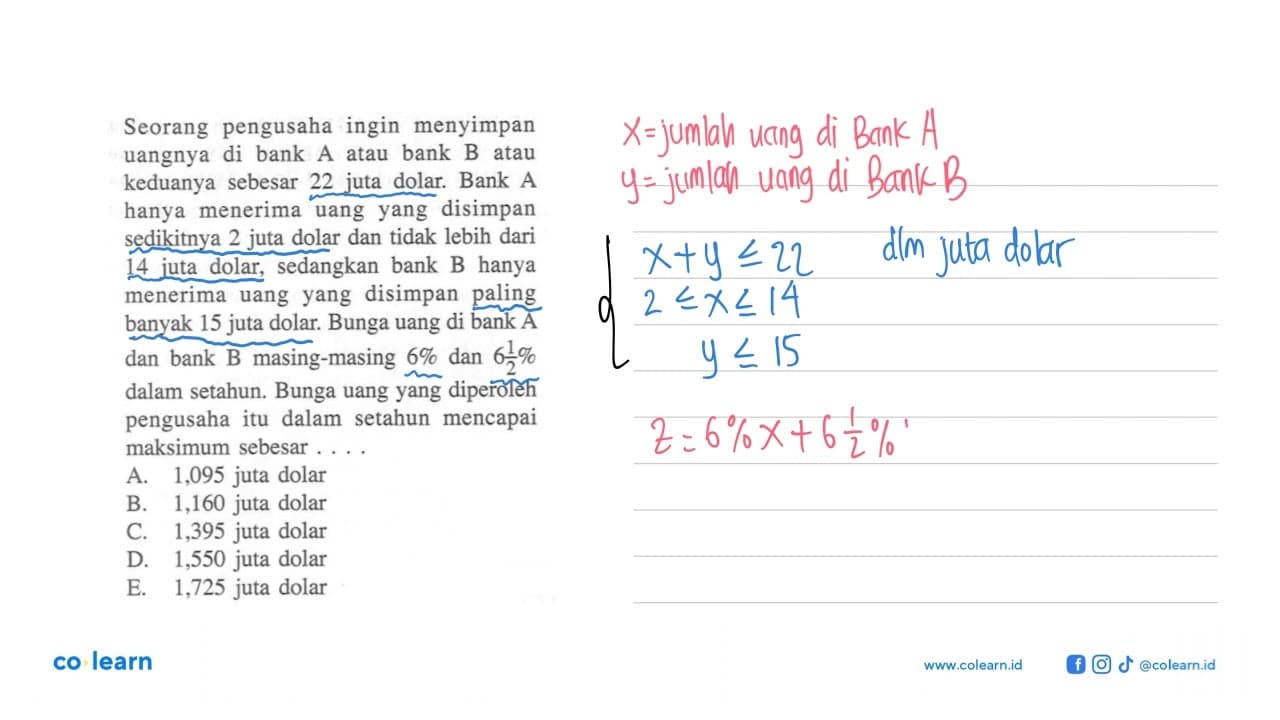 Seorang pengusaha ingin menyimpan
uangnya di bank A atau bank B atau
keduanya sebesar 22 juta dolar. Bank A
hanya menerima uang yang disimpan
sedikitnya 2 juta dolar dan tidak lebih dari
14 juta dolar, sedangkan bank B hanya
menerima uang yang disimpan paling
banyak 15 juta dolar. Bunga uang di bank A
dan bank B masing-masing 6% dan 6 1/2%
dalam setahun. Bunga uang yang diperoleh
pengusaha itu dalam setahun mencapai
maksimum sebesar . . . .
A. 1,095 juta dolar
B. 1,160 juta dolar
C. 1,395 juta dolar
D. 1,550 juta dolar
E. 1,725 juta dolar
x = jumlah uang di Bank A
y = jumlah uang di Bank B
x + y ≤ 22 dlm juta dolar
2 ≤ x ≤ 14
y ≤ 15
z = 6% x + 6 1/2 %
co learn
www.colearn.id
@colearn.id